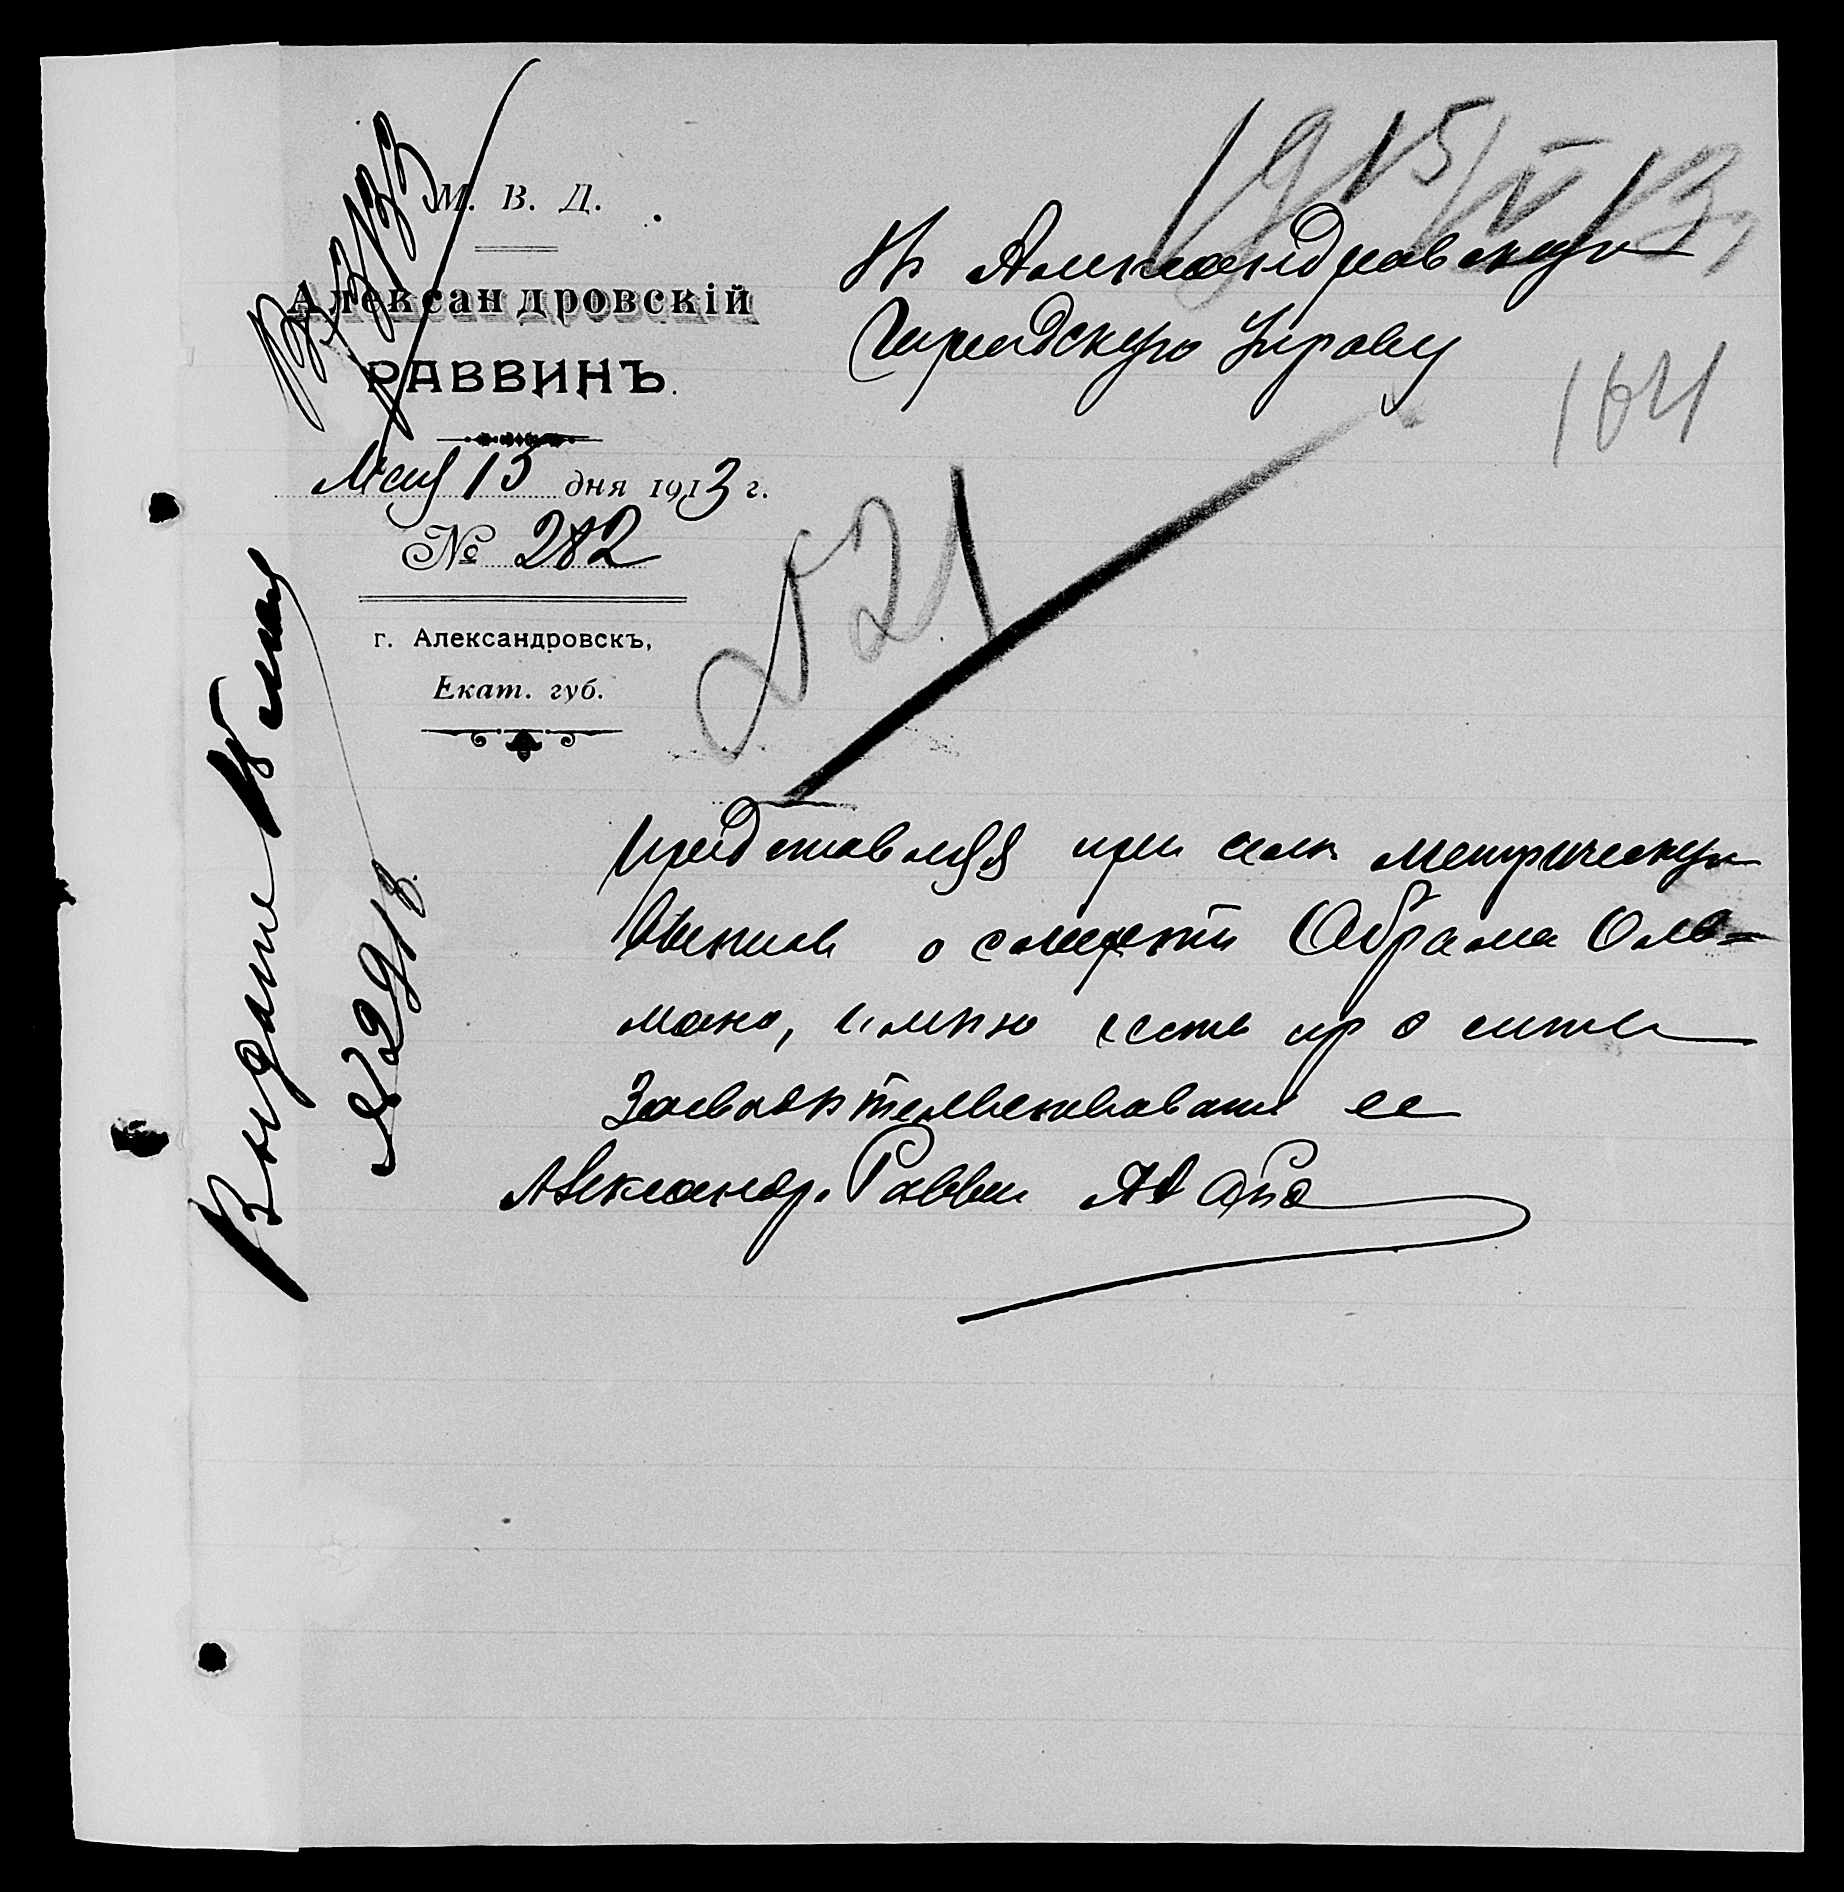 М. В. Д.
Александровскій
РАВВИНЪ.
Мая 13 дня 1913 г.
№ 282
г. Александровскъ,
Екат. губ.
1915/V 13
Въ Александровскую
Городскую Управу
164
521
Представляя при семъ метрическую
выпись о смерти Абрама Оль=
мана, имѣю честь просить
засвидѣтельствовать ее
Александр. Раввин
Выдана 15 мая
№ 2913